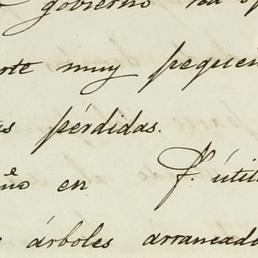 gobierno
muy pequeñ
pérdidas.
en F. útil
árboles arrancado